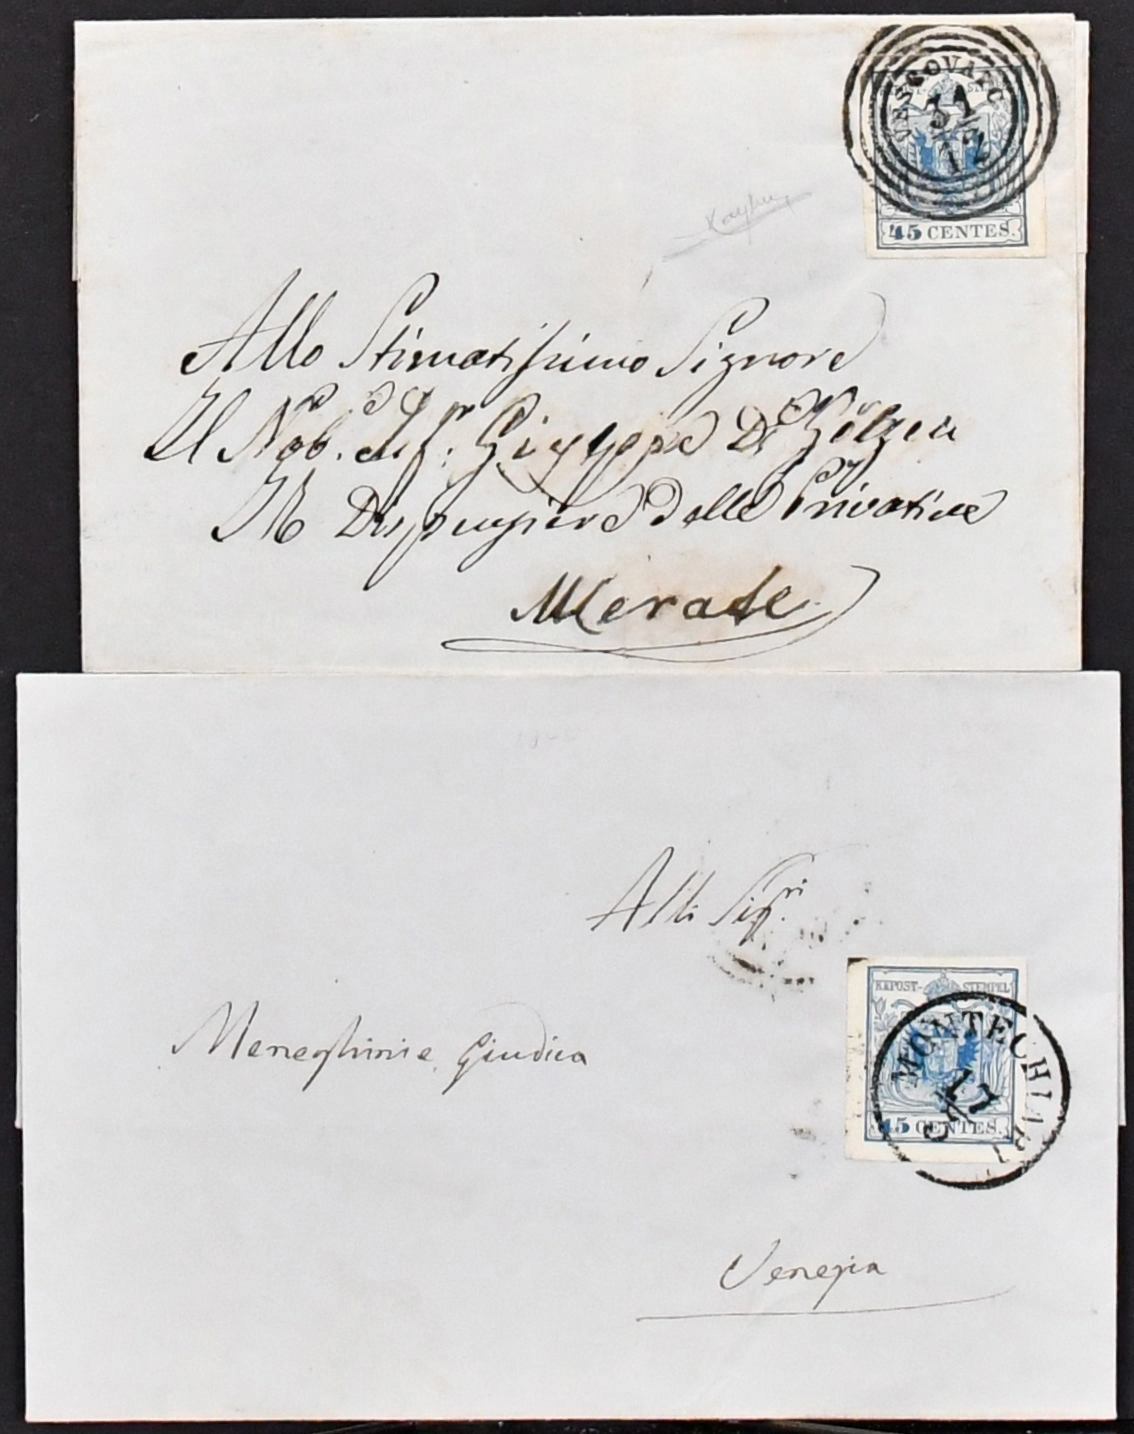 VESCOVATO
31
12
45 CENTES.
Allo Stimatissimo Signore
Il Nob. Sigr. Giuseppe De
Il Dispensiere delle Privative
Merate
Alli Sigri.
Meneghini e Giudica
KKPOST-STEMPEL
MONTECHIARI
45 CENTES.
Venezia